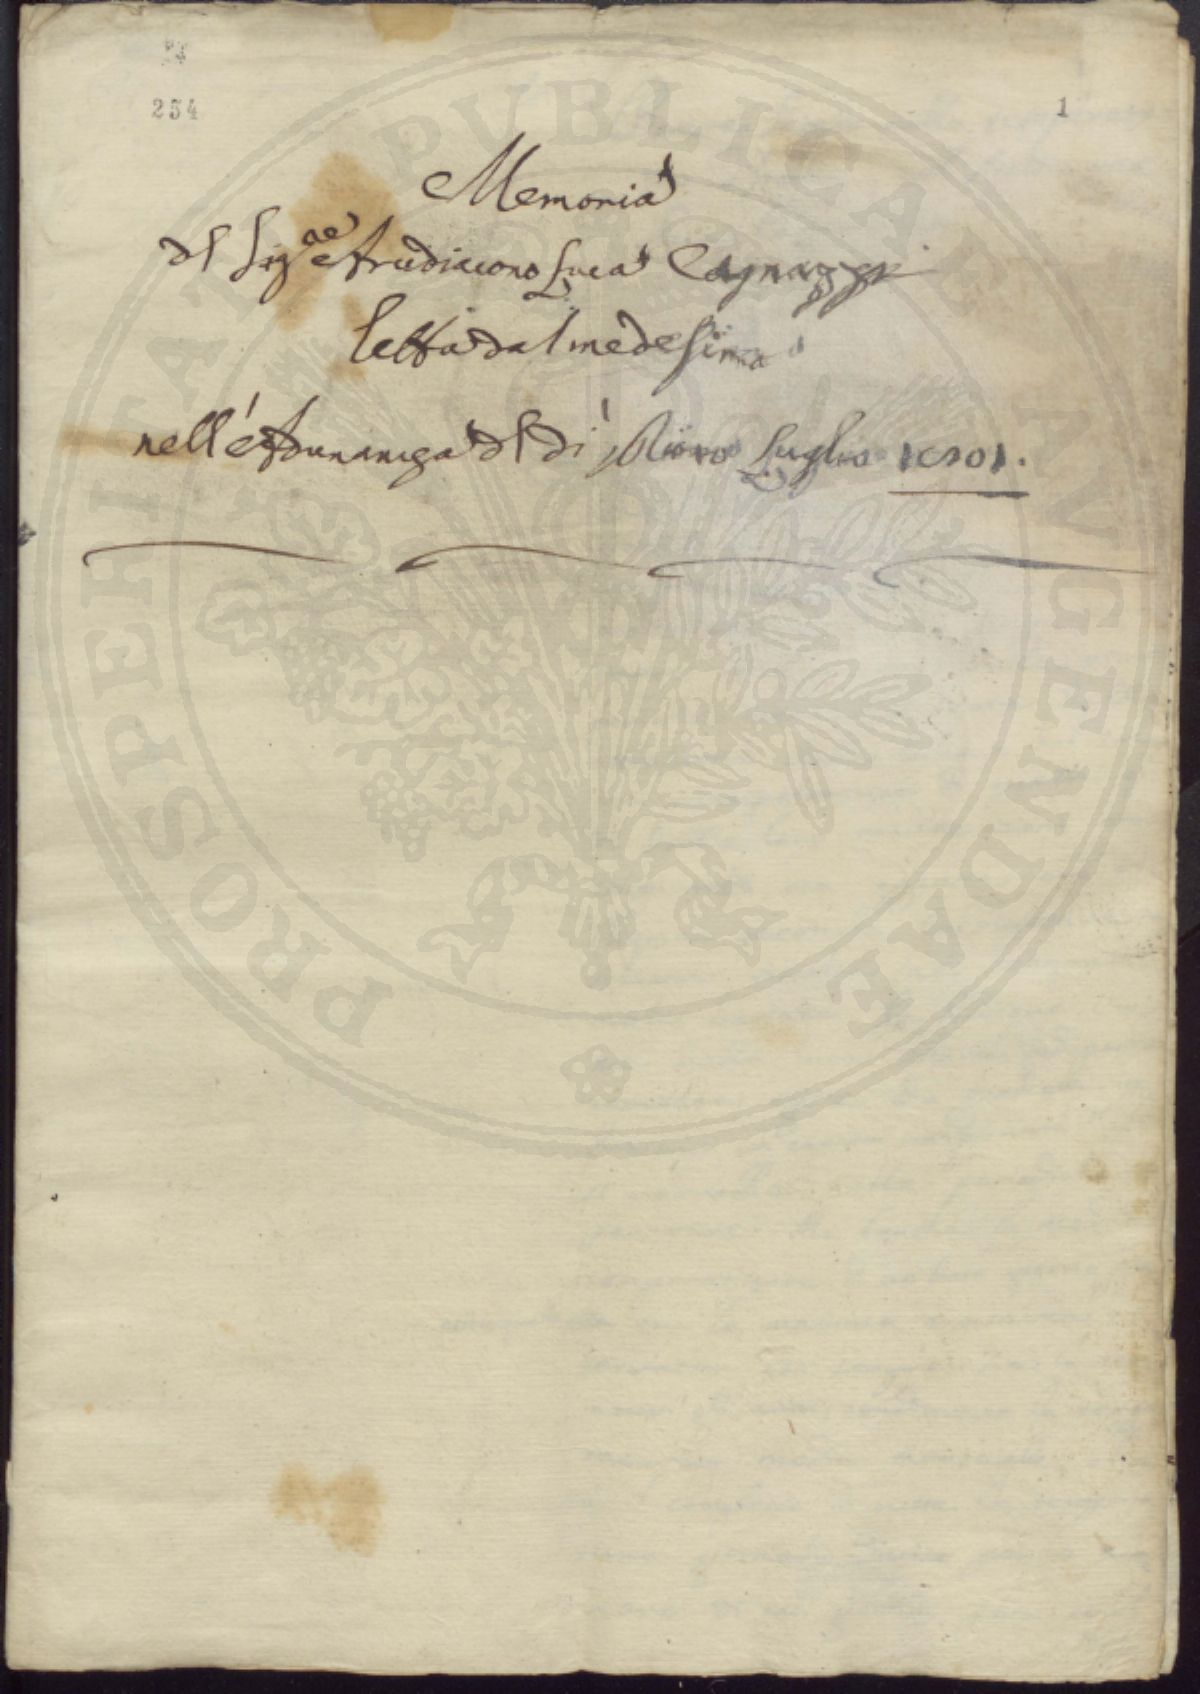 254
1
Memoria
del Sig.re Arcidiacono Luca Cagnazzi
letta dal medesimo
nell'Adunanza del dì Luglio 1801.
PROSPERITATI PUBLICAE AVGENDAE